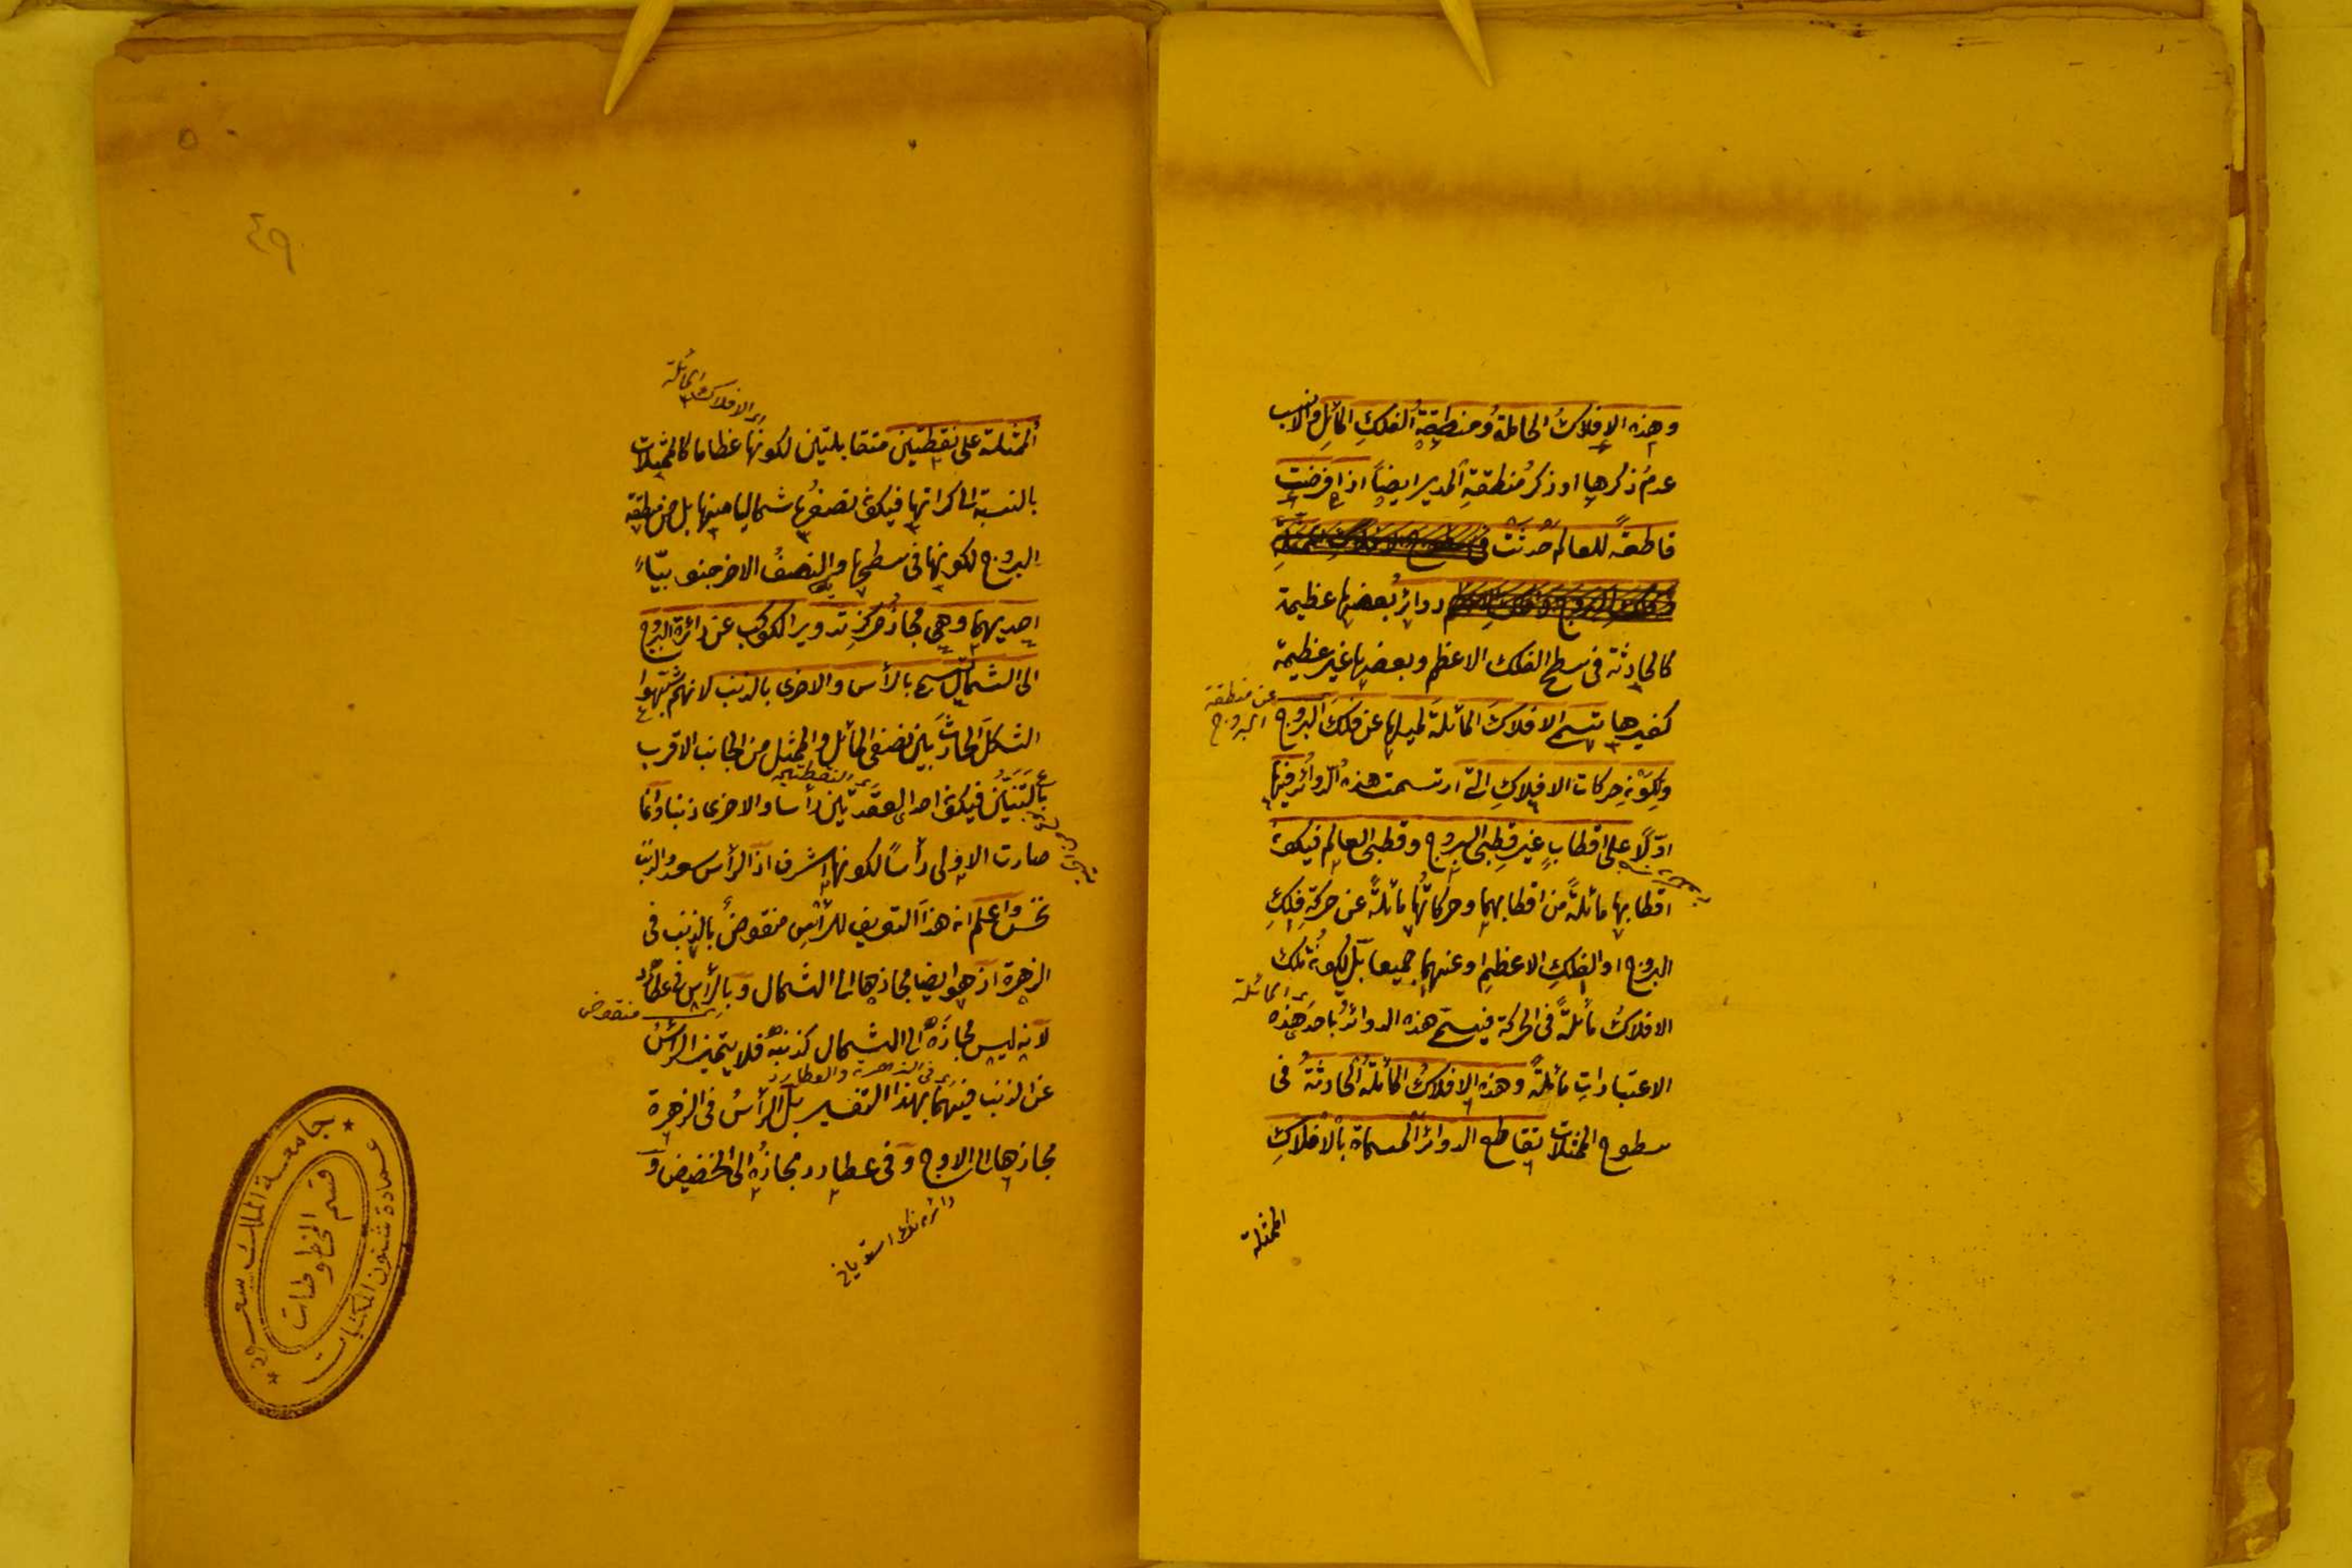 وهذه الافلاكُ الحاملةُ ومنطقةُ الفلكِ المائلِ والانسب
عدمُ ذكرها او ذكرُ منطقةِ المديرِ ايضاً اذا فرضت
قاطعةً للعالم حُدثَتْ فى
دوائرُ بعضها عظيمة
كالحادثة فى سطح الفلك الاعظم وبعضها غير عظيمة
كغيرها تسمى الافلاكَ المائلةَ لميلها عن فلك البروج
عن منطقة البروج
ولكون حركات الافلاكِ التى ارتسمت هذه الدوائرُ فيها
اوّلاً على اقطابٍ غيرِ قطبى البروج وقطبى العالم فيكون
اقطابها مائلةً من اقطابهما وحركاتُها مائلةً عن حركة فلكِ
البروج او الفلكِ الاعظمِ او عنهما جميعا بل لكونِ تلك
الافلاكُ مائلةً فى الحركة فيسمى هذه الدوائرُ باحد هذه
اى المائلة
الاعتباراتِ مائلةً وهذه الافلاكُ المائلةُ الحادثةُ فى
سطوح الممثلات تقاطع الدوائر المسماة بالافلاكِ
الممثلة
٤٩
اى الافلاك المائلة
الممثلة على نقطتين متقابلتين لكونها عظاما كالممثلات
بالنسبة الى كراتها فيكون نصفُها شماليا منها بل من منطقة
البروج لكونها فى سطحها والنصفُ الاخر جنوبيّا
احديهما وهى مجازُ مركزِ تدويرِ الكوكب عن دائرة البروج
الى الشمال تسمى بالرأس والاخرى بالذنب لانهم شبّهوا
الشكلَ الحادثَ بين نصفى المائل والممثل من الجانب الاقرب
بالتنين فيكون احد العقدتين رأسا والاخرى ذنبا وانما
اى النقطتين
صارت الاولى رأساً لكونها اشرف اذ الرأس سعد والذنب
نحس واعلم ان هذا التعريف للرأسِ منقوضٌ بالذنب فى
الزهرة اذ هو ايضا مجازها الى الشمال وبالرأس فى عطارد
اى منقوض
لانه ليس مجازه الى الشمال كذنبه فلا يتميز الرأسُ
اى فى الزهرة والعطارد
عن الذنب فيهما بهذا التفسير بل الرأسُ فى الزهرة
مجازها الى الاوج وفى عطارد مجازُه الى الحضيض و
جامعة الملك سعود
عمادة شئون المكتبات
قسم المخطوطات